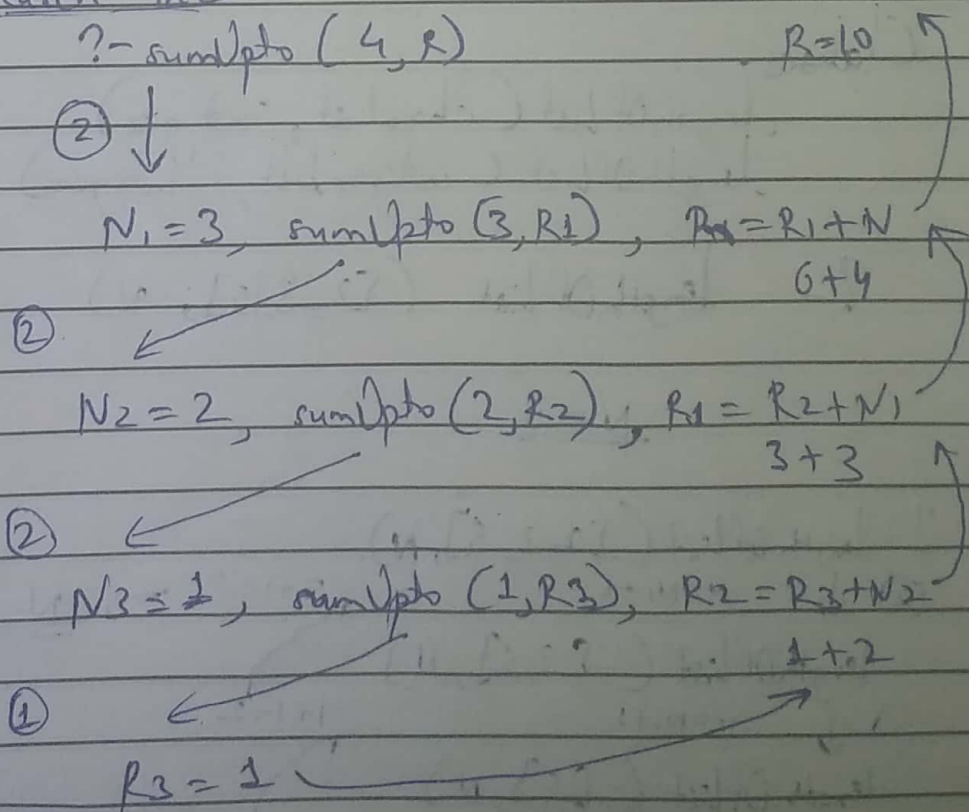 ?- sumUpto (4, R) R=10
②
N1 = 3, sumUpto (3, R1), R = R1 + N
6+4
②
N2 = 2, sumUpto (2, R2), R1 = R2 + N1
3 + 3
②
N3 = 1, sumUpto (1, R3), R2 = R3 + N2
1 + 2
①
R3 = 1